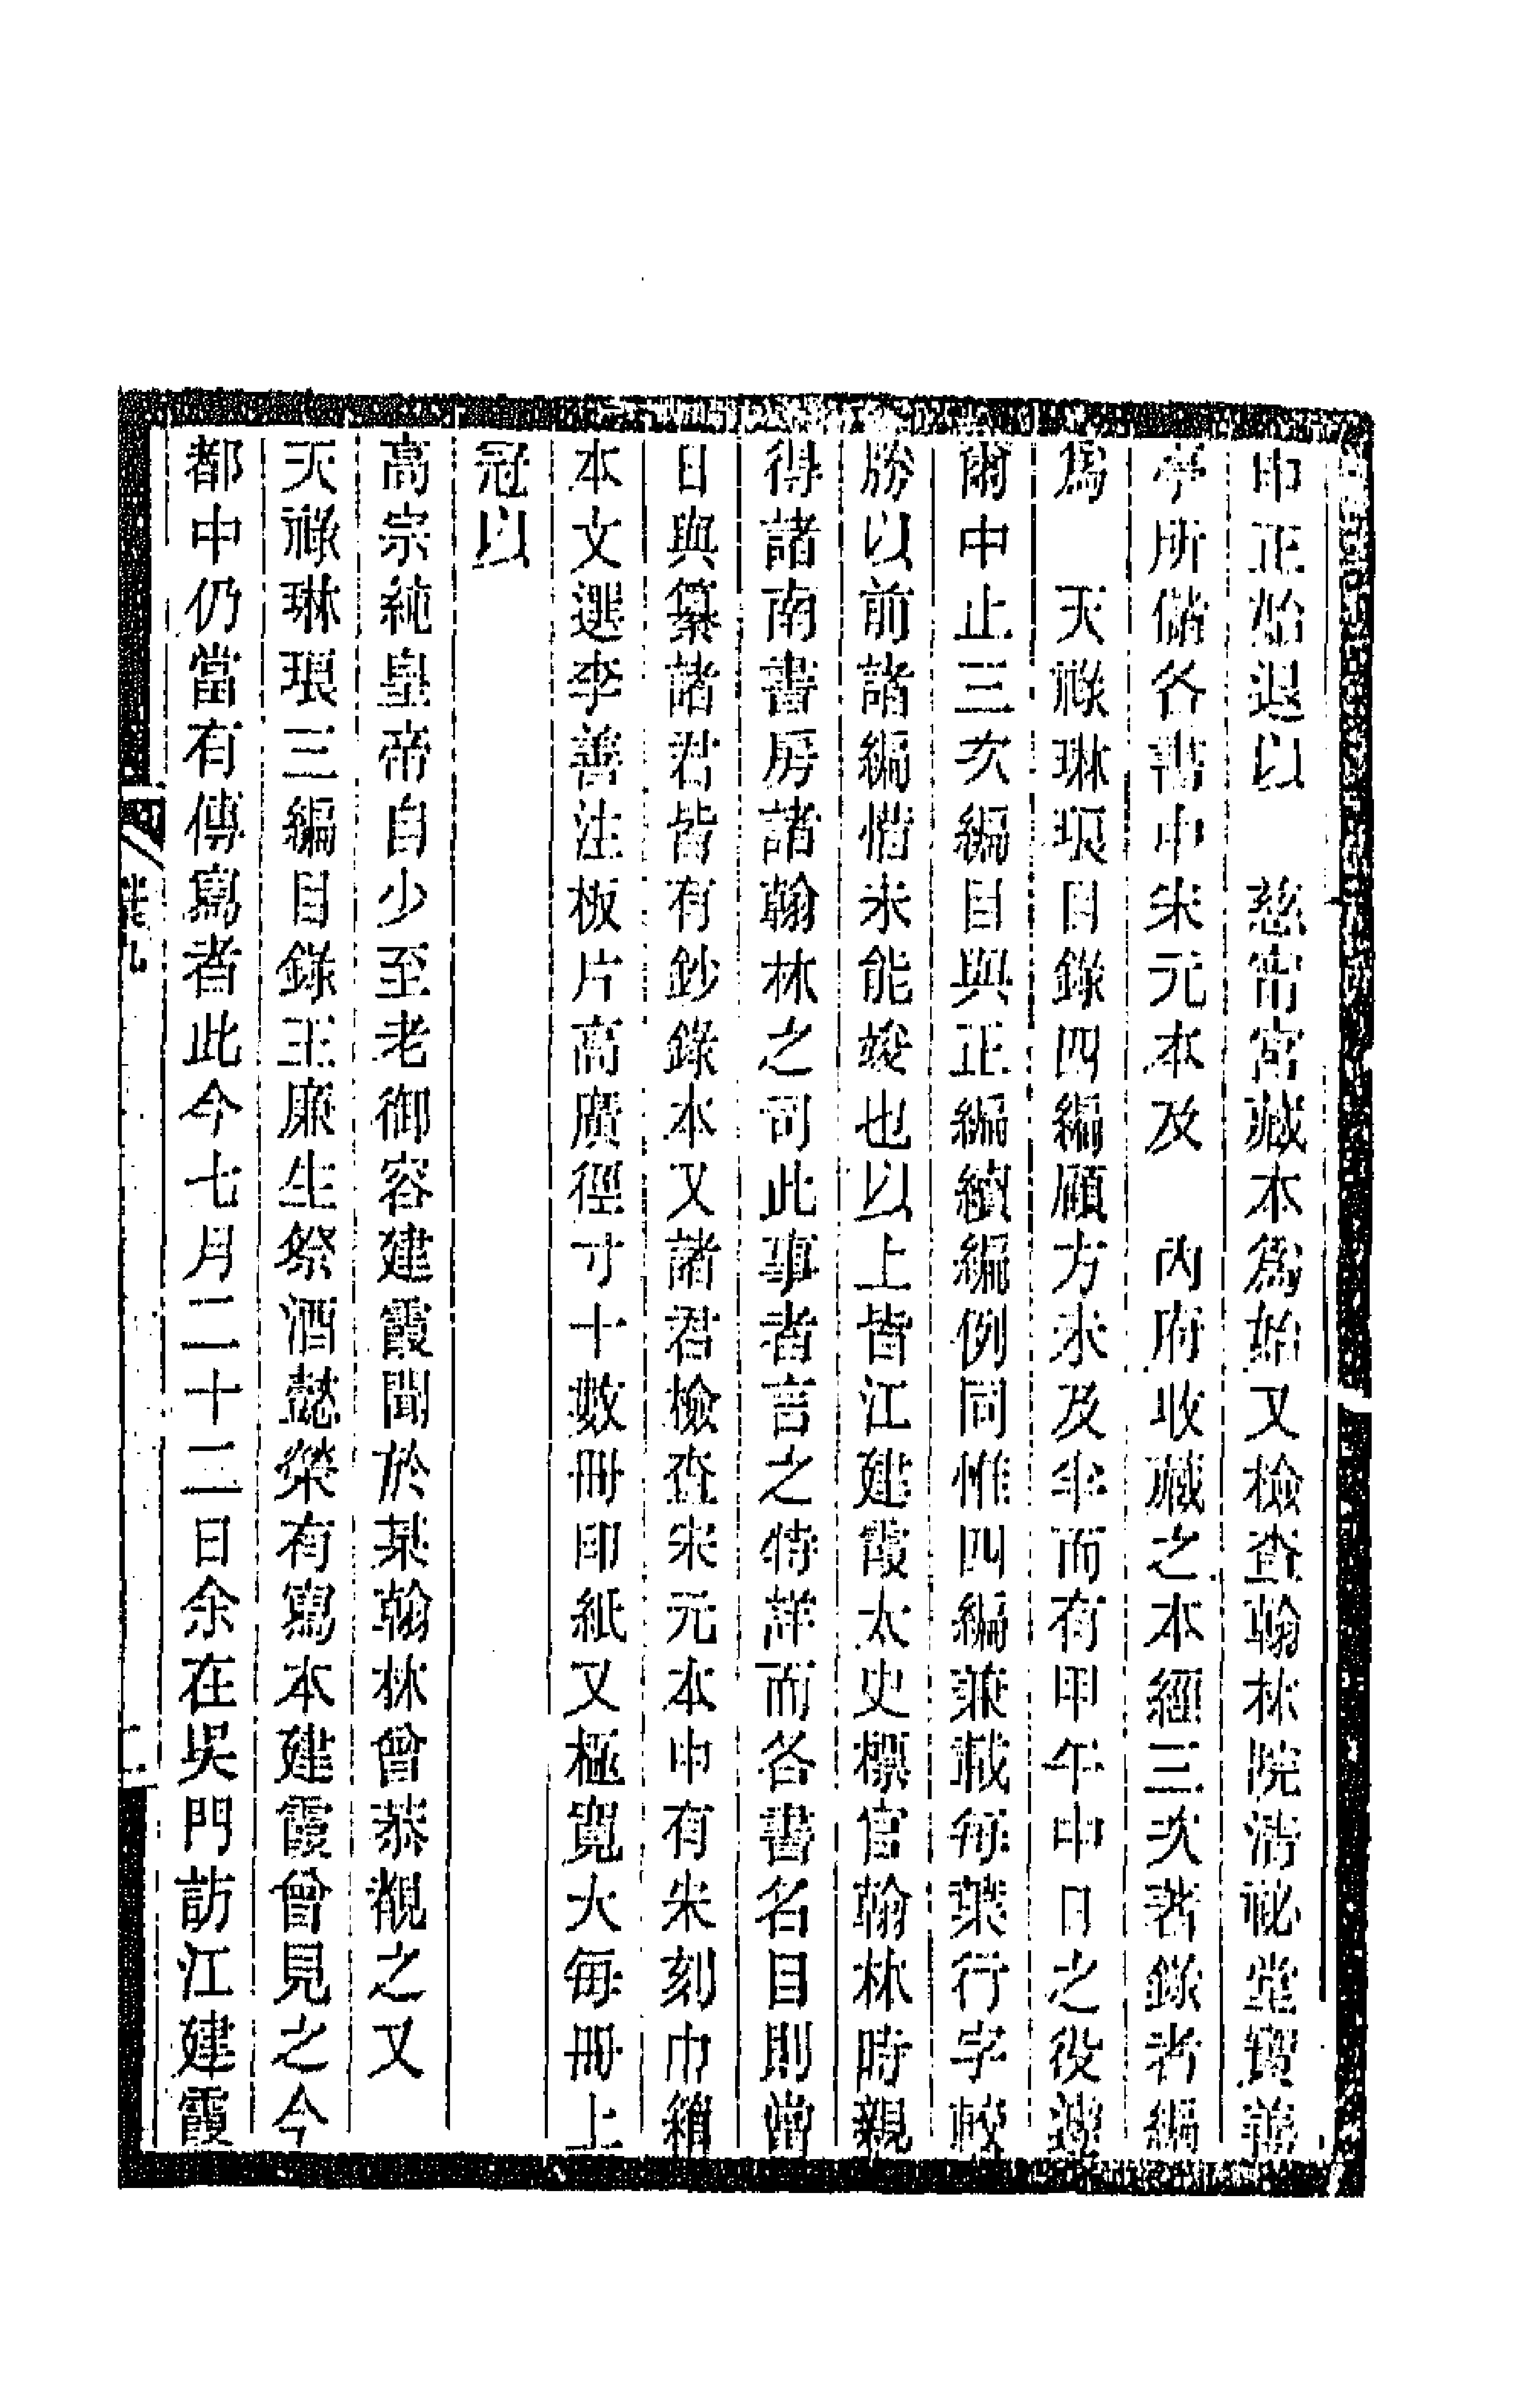 申正始退以　慈甯宮藏本爲始又檢查翰林院清祕堂寶善
亭所儲各書中宋元本及　內府收藏之本經三次著錄者編
爲　天祿琳琅目錄四編顧方未及半而有甲午中日之役遂
爾中止三次編目與正編續編例同惟四編兼載每葉行字較
勝以前諸編惜未能竣也以上皆江建霞太史標官翰林時親
得諸南書房諸翰林之司此事者言之特詳而各書名目則當
日與纂諸君皆有鈔錄本又諸君檢查宋元本中有宋刻巾箱
本文選李善注板片高廣徑寸十數冊印紙又極寬大每冊上
冠以
高宗純皇帝自少至老御容建霞聞於某翰林曾恭觀之又
天祿琳琅三編目錄王廉生祭酒懿榮有寫本建霞曾見之今
都中仍當有傳寫者此今七月二十二日余在吳門訪江建霞
叢九
二